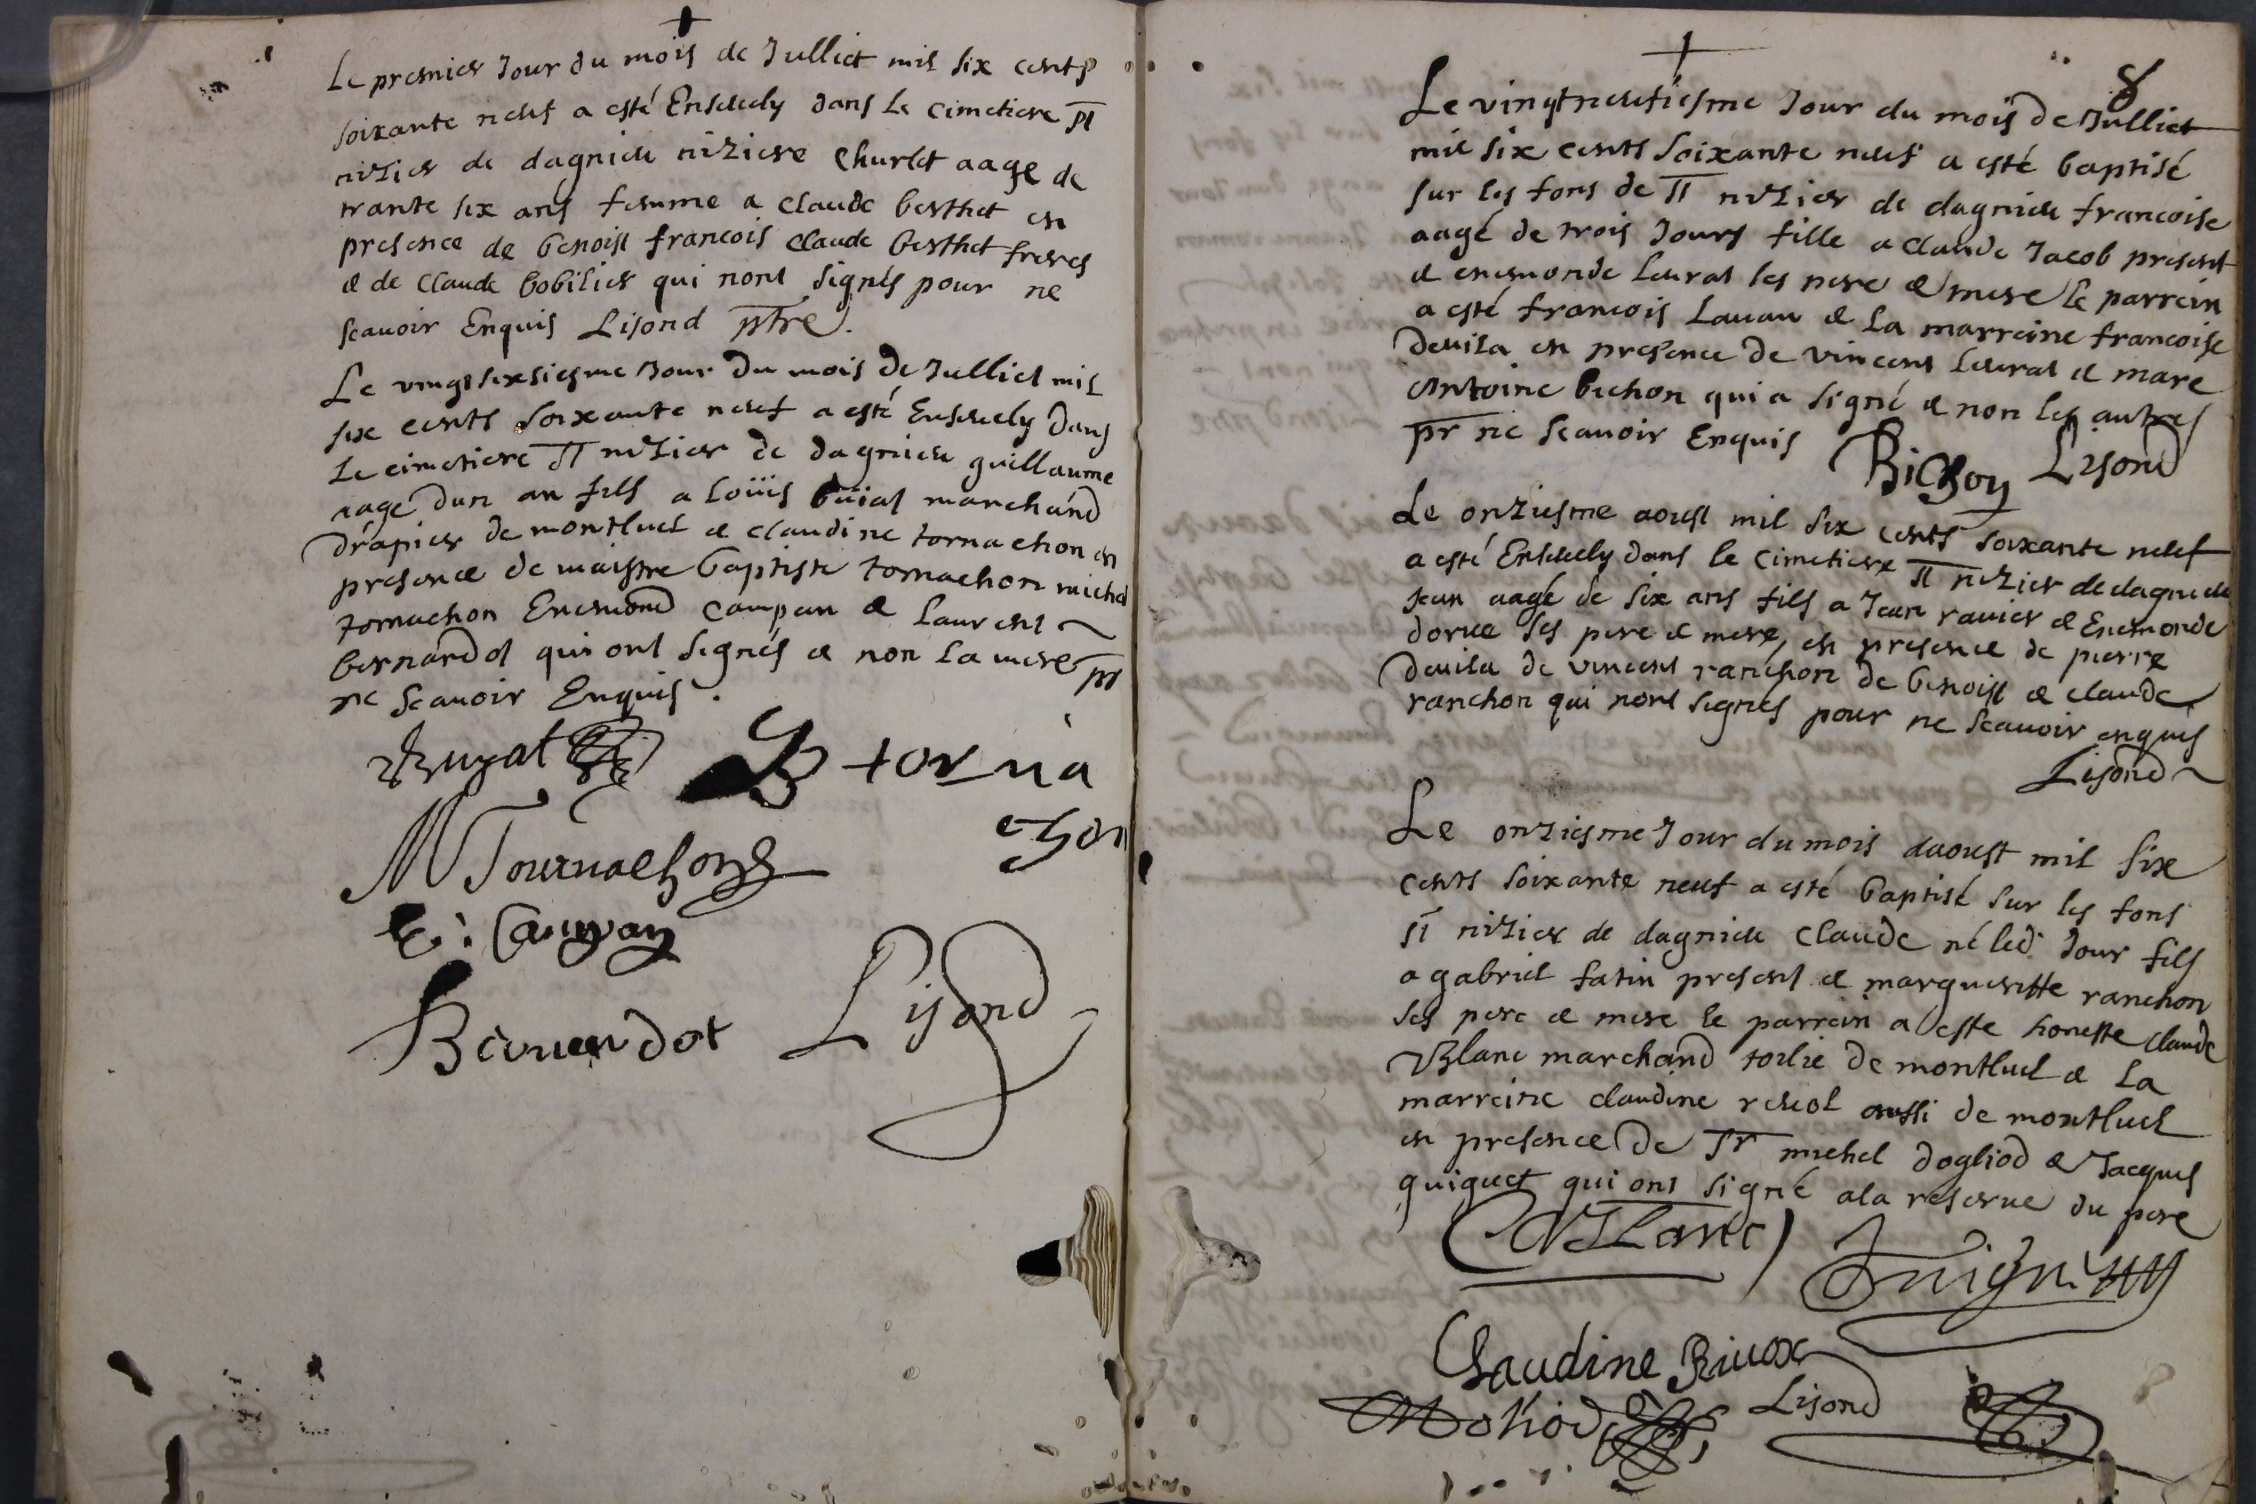 Le premier Jour du mois de Julliet mil six cents
soixante neuf a esté Ensevely dans le cimetiere st
nizier de dagnieu niziere Churlet aage de
trante six ans femme a claude berthet en
presence de benoist francois claude berthet freres
& de claude bobilier qui nont signés pour ne
scavoir Enquis Lisond ptre.
Le vingt sixsiesme Jour du mois de Julliet mil
six cents soixante neuf a esté Ensevely dans
le cimetiere st nizier de dagnieu guillaume
aagé dun an fils a loüis buiat marchand
drapier de montluel & claudine tornachon en
presence de maistre baptiste tornachon michel
tornachon Enemond campan & laurent
bernardot qui ont signés & non la mere pr
ne scavoir Enquis.
Buyat B torna
chon
M Tournachon
E: Campan
Bernardot Lisond
8
Le vingtneufiesme Jour du mois de Julliet
mil six cents soixante neuf a esté baptisé
sur les fons de st nizier de dagnieu francoise
aagé de trois Jours fille a claude Jacob present
& enemonde leurat ses pere & mere le parrein
a esté francois lauau & la marreine francoise
deuila en presence de vincent leurat & mare
Antoine bichon qui a signé & non les autres
pr ne scavoir Enquis
Bichon Lisond
Le onziesme aoust mil six cents soixante neuf
a esté Ensevely dans le cimetiere st nizier de dagnieu
Jean aagé de six ans fils a Jean ravier & Enemonde
dorue ses pere & mere, en presence de pierre
deuila de vincent ranchon de benoist & claude
ranchon qui nont signés pour ne scavoir enquis
Lisond
Le onziesme Jour du mois daoust mil six
cents soixante neuf a esté baptisé sur les fons
st nizier de dagnieu claude né led Jour fils
a gabriel fatin present & margueritte ranchon
ses pere & mere le parrein a esté honeste claude
Blanc marchand toilie de montluel & la
marreine claudine reuol aussi de montluel
en presence de sr michel dogliod & Jacques
guiguet qui ont signé a la reserve du pere
C Blanc
Claudine Rivox
Lisond